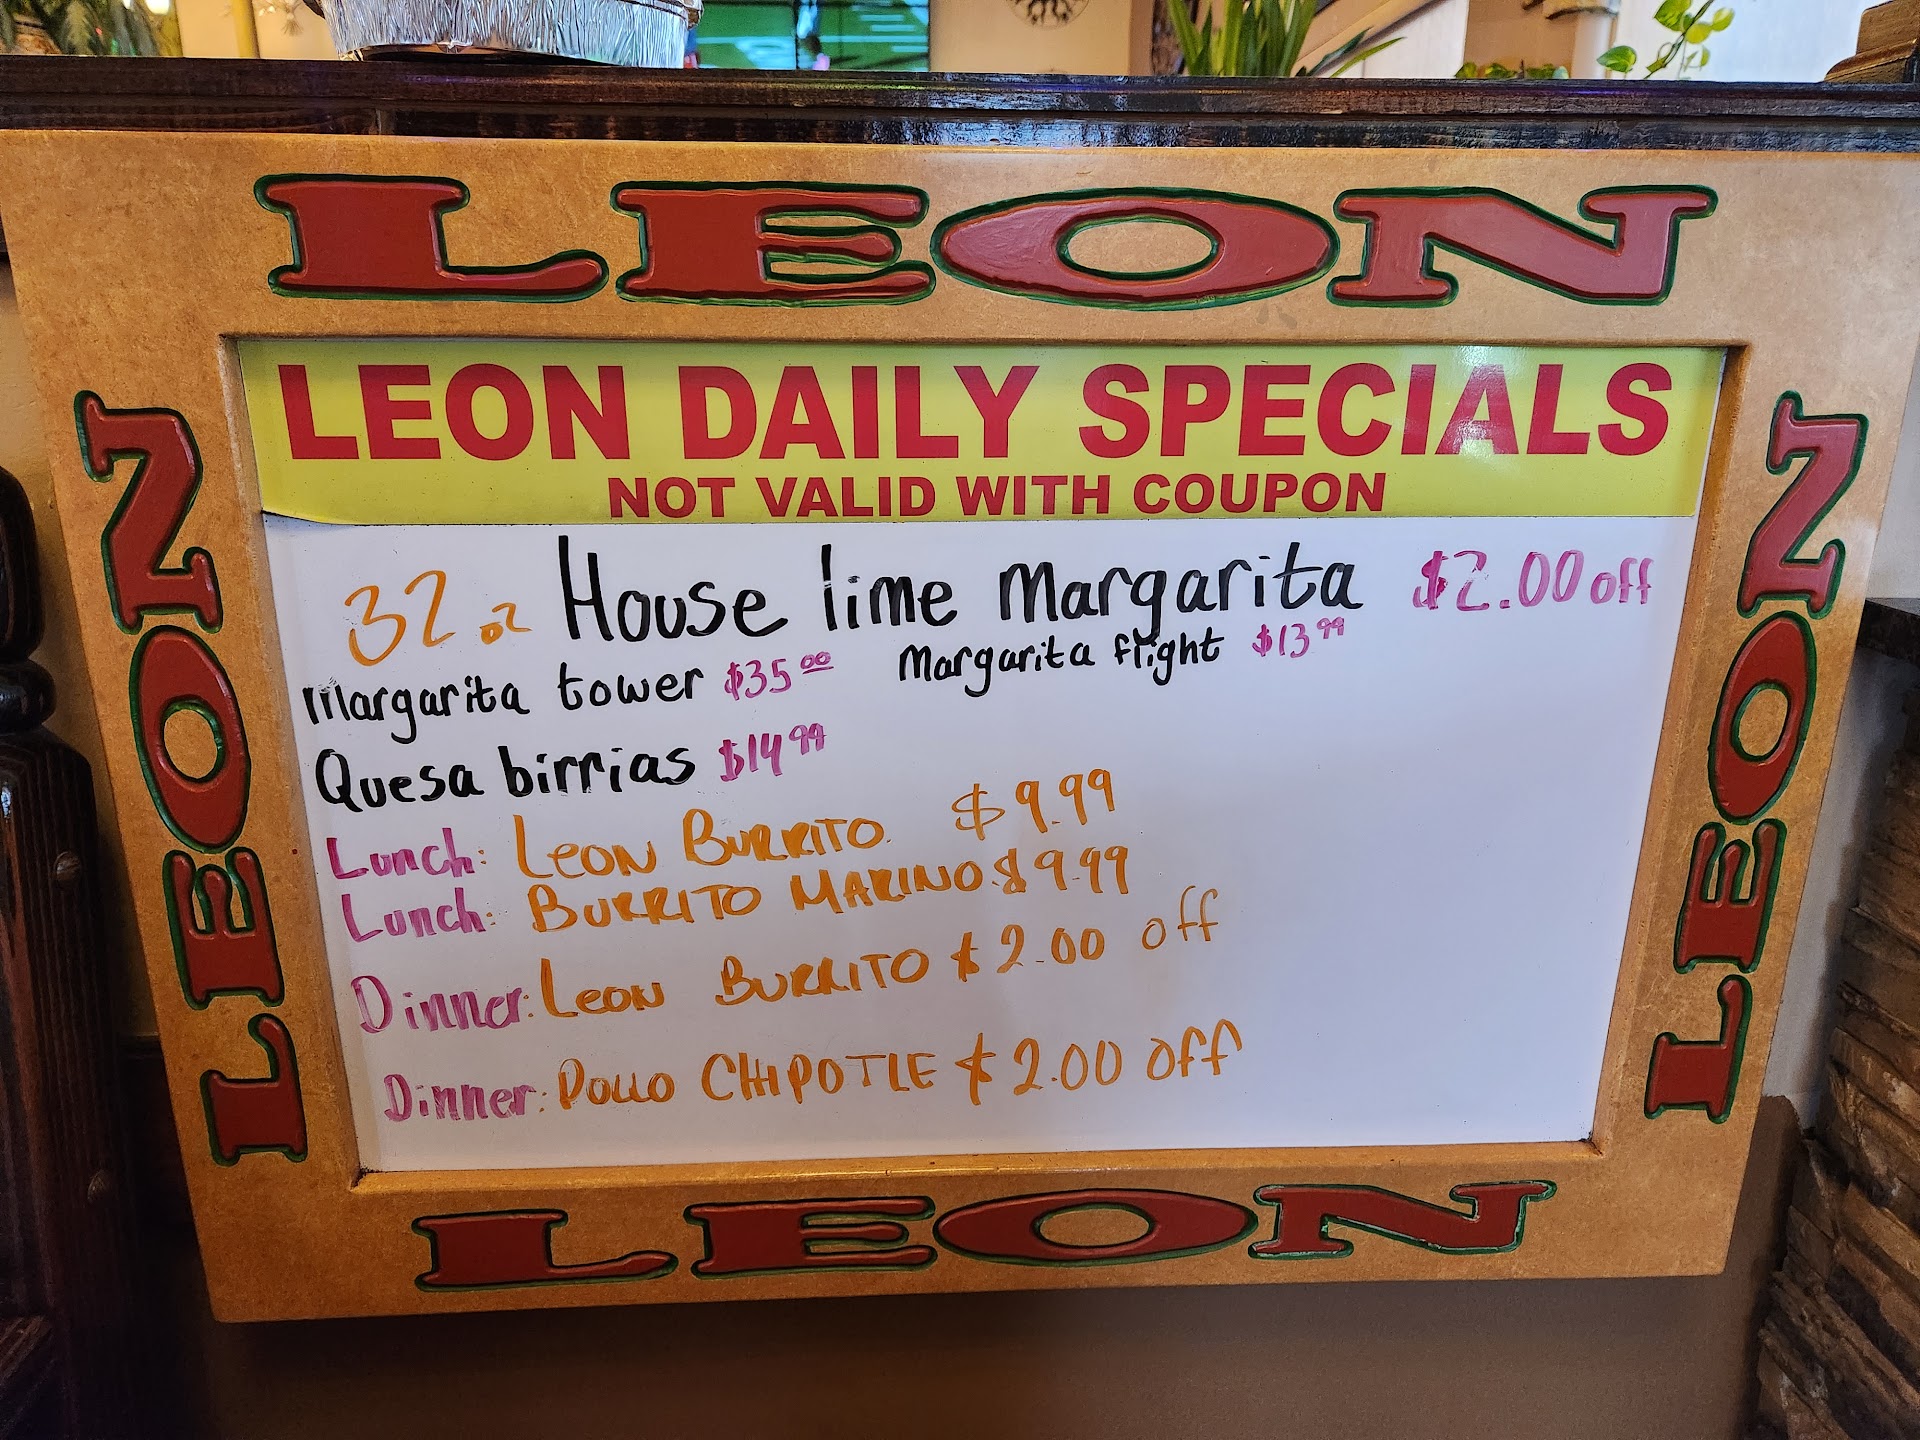 LEON
LEON DAILY SPECIALS
NOT VALID WITH COUPON
32 oz House lime Margarita $2.00 off
Margarita tower $35.00 Margarita flight $13.99
Quesa birrias $14.99
Lunch: LEON BURRITO. $9.99
Lunch: BURRITO MARINO $9.99
Dinner: LEON BURRITO $2.00 off
Dinner: POLLO CHIPOTLE $2.00 off
LEON
LEON
LEON